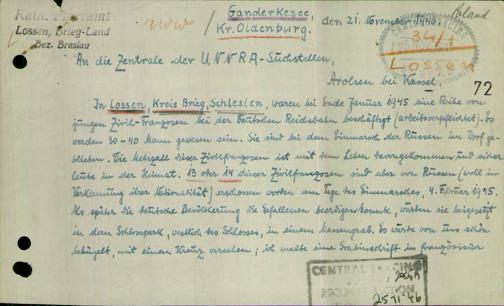 Kath. Pfarramt
Lossen, Brieg-Land
Bez. Breslau
Ganderkesee,
Kr. Oldenburg.
, den 21. November 1946.
Poland
34/1
Lossen
An die Zentrale der UNNRA-Suchstellen,
Arolsen bei Kassel.
72
In Lossen, Kreis Brieg, Schlesien, waren bei Ende Januar 1945 eine Reihe von
jungen Zivil-Franzosen bei der Deutschen Reichsbahn beschäftigt (arbeitsverpflichtet). Es
werden 30-40 Mann gewesen sein. Sie sind bei dem Einmarsch der Russen im Dorf ge-
blieben. Die Mehrzahl dieser Zivilfranzosen ist mit dem Leben davongekommen und sicher
heute in der Heimat. 13 oder 14 dieser Zivilfranzosen sind aber von Russen (wohl in
Verkennung ihrer Nationalität) erschossen worden am Tage des Einmarsches, 4. Februar 1945.
Als später die deutsche Bevölkerung die Gefallenen beerdigen konnte, wurden sie beigesetzt
in dem Schlosspark, westlich des Schlosses, in einem Massengrab. Es wurde von uns schön
gehügelt, mit einem Kreuz versehen; ich malte eine Grabinschrift in französischer
CENTRAL TRACING
25 11 46